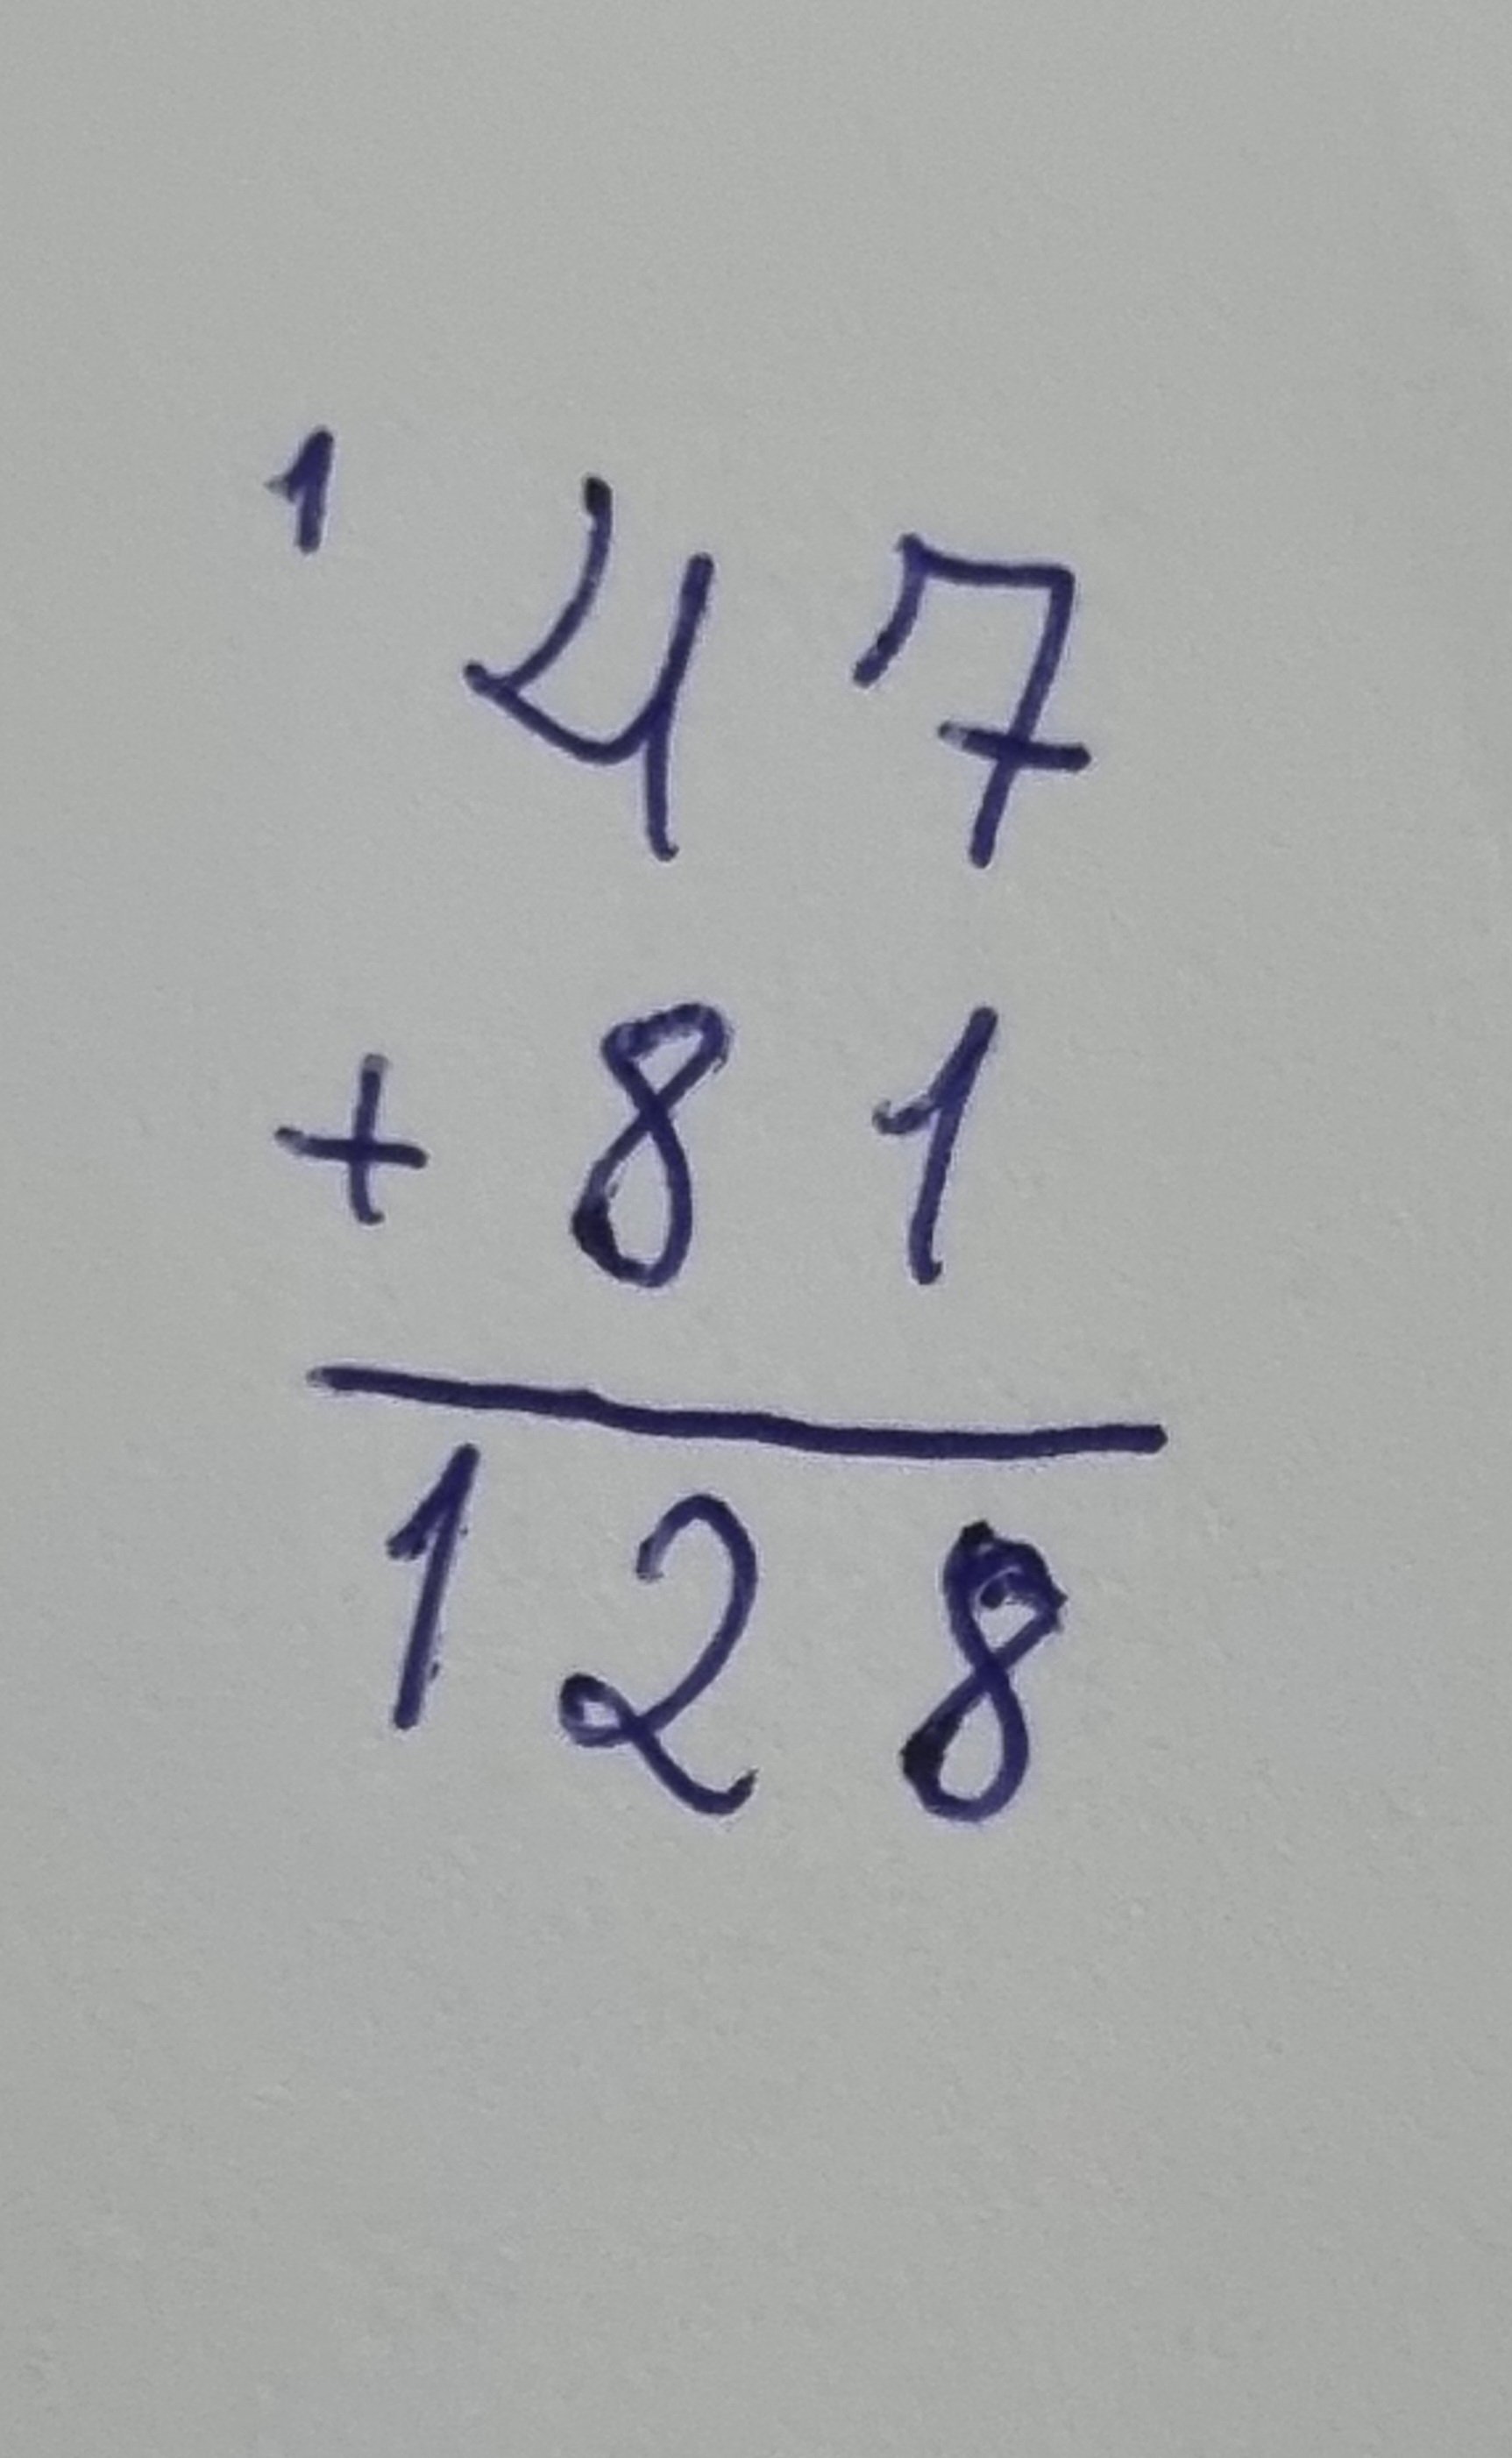 1
47
+ 81
128